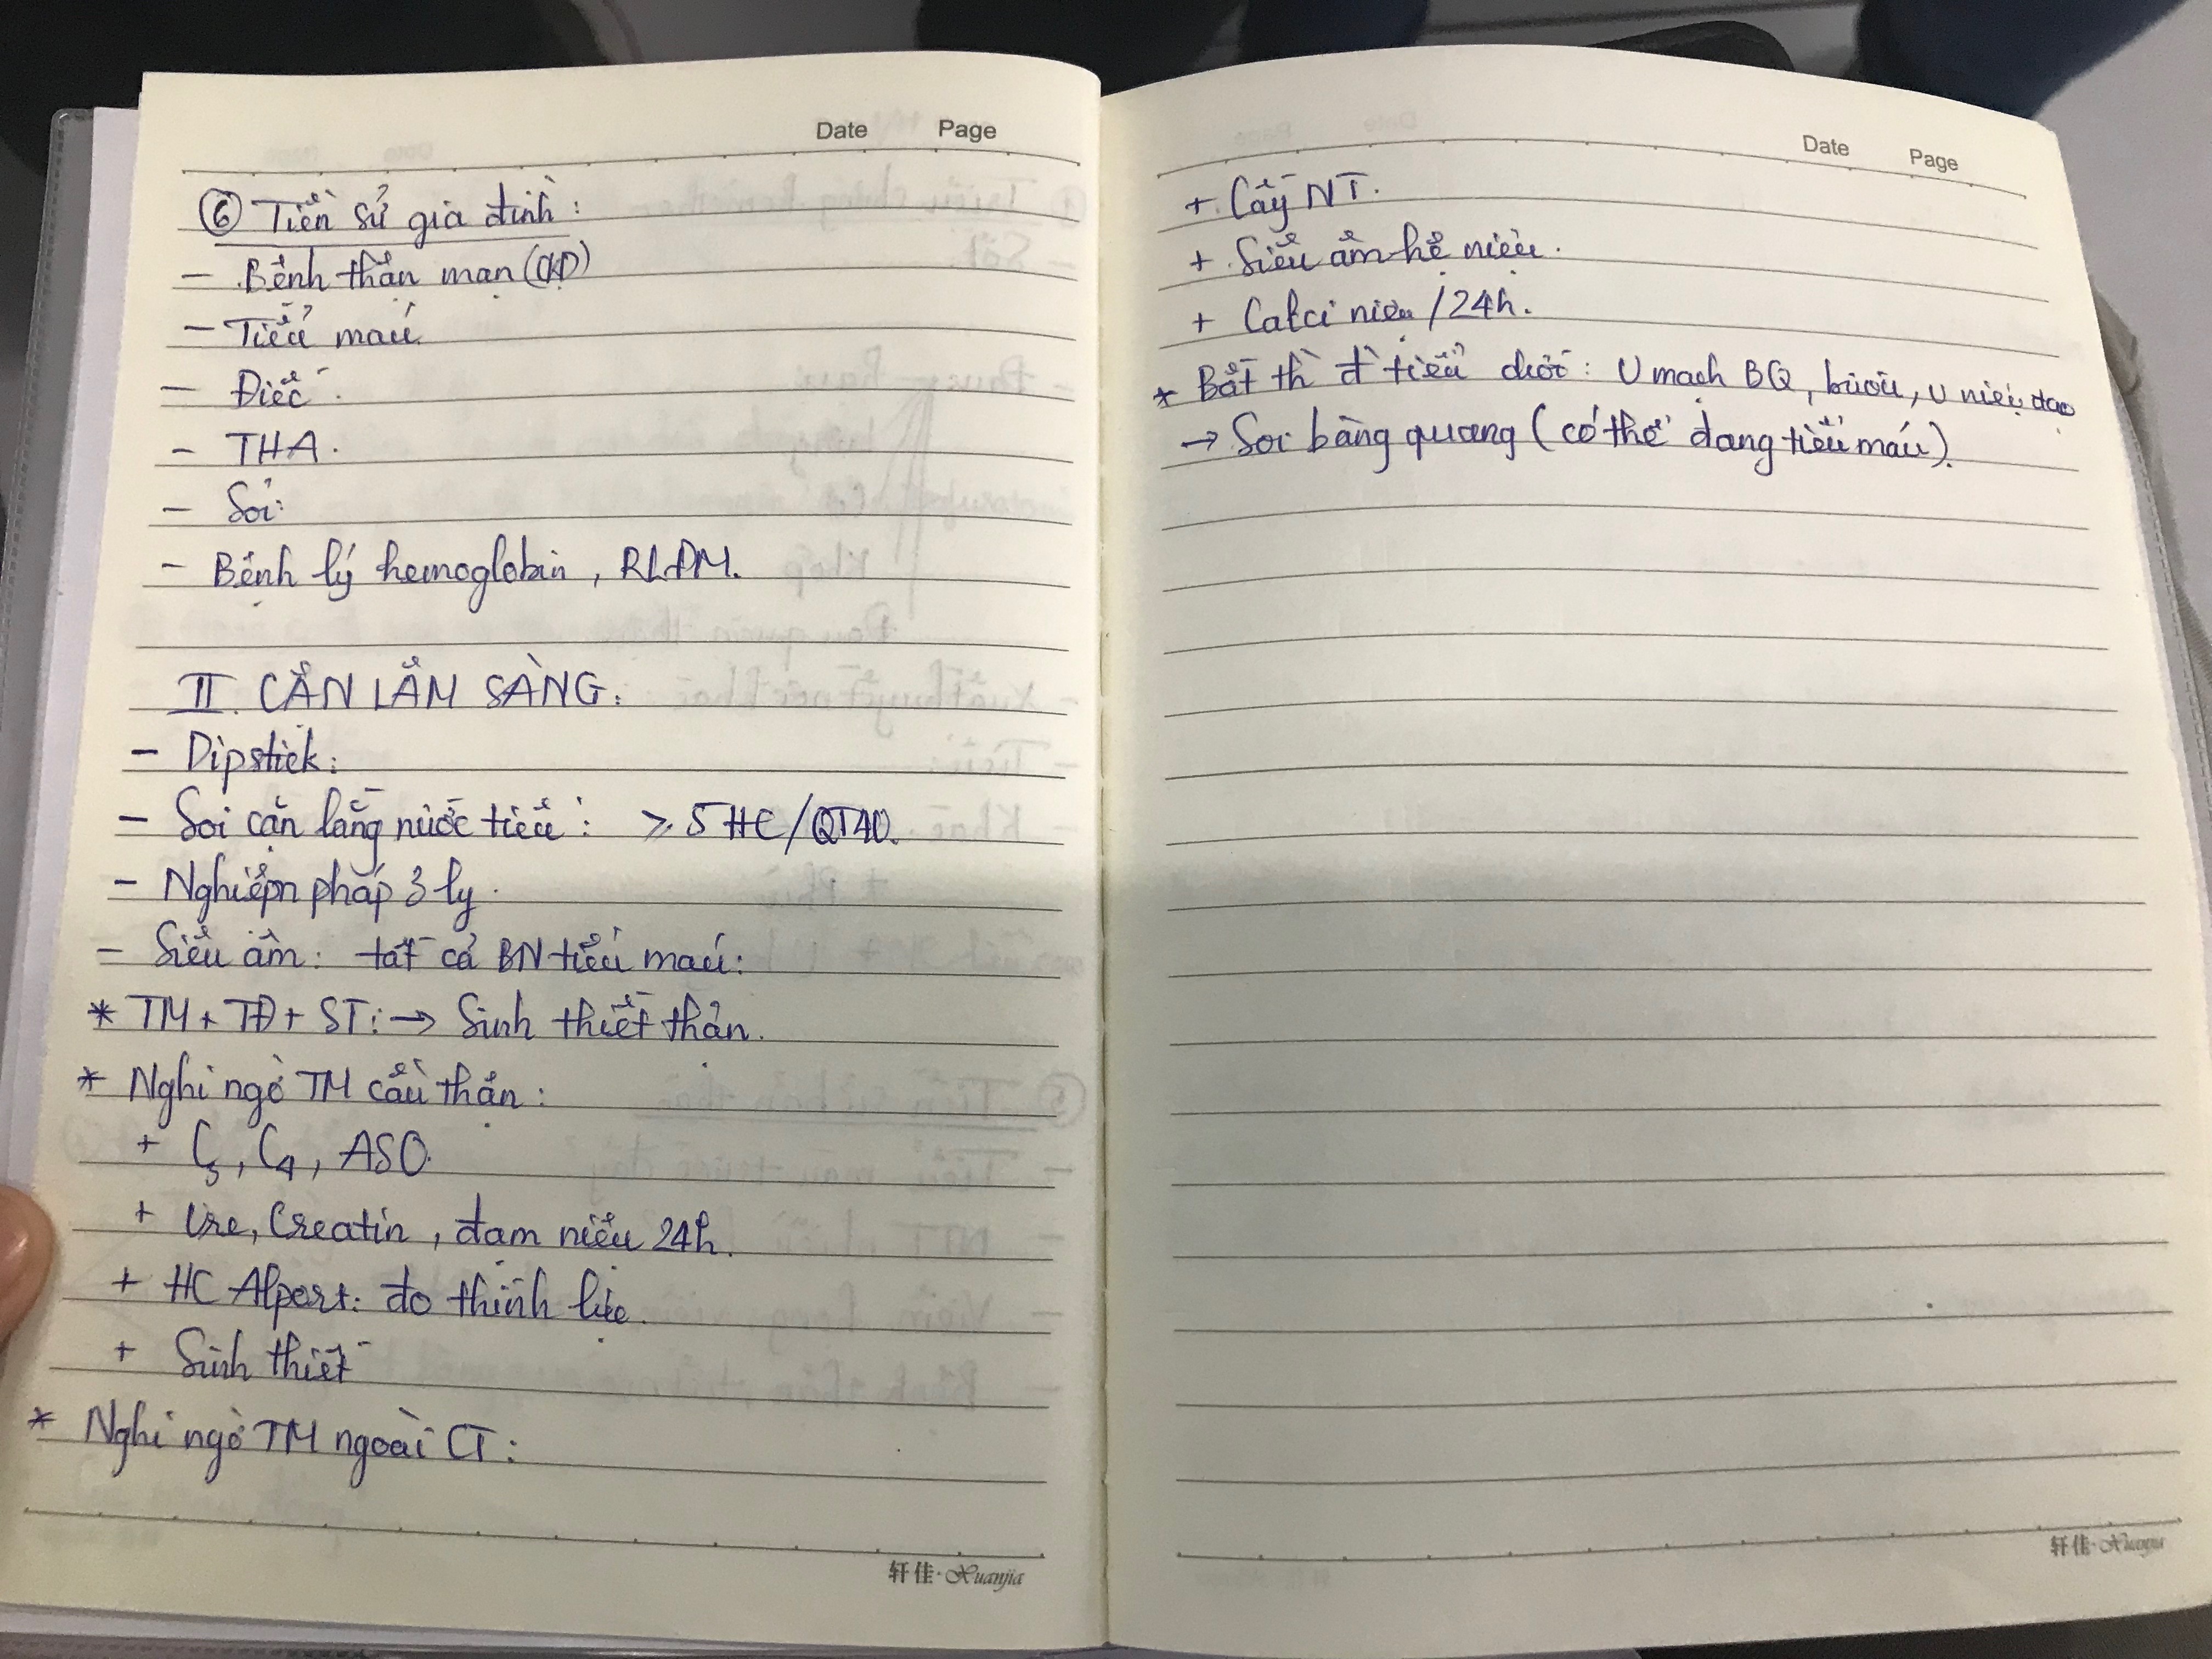 Date Page
⑥ Tiền sử gia đình :
- Bệnh thận mạn (CKD)
- Tiểu máu
- Điếc.
- THA.
- Sỏi
- Bệnh lý hemoglobin, RLĐM.
II. CẬN LÂM SÀNG:
- Dipstick:
- Soi cặn lắng nước tiểu : ≥ 5 HC/QT40.
- Nghiệm pháp 3 ly.
- Siêu âm: tất cả BN tiểu máu:
* TM + TĐ + ST: → Sinh thiết thận.
* Nghi ngờ TM cầu thận:
+ C3, C4, ASO.
+ Ure, Creatin, đạm niệu 24h.
+ HC Alport: đo thính lực.
+ Sinh thiết
* Nghi ngờ TM ngoài CT:
轩佳·Xuanjia
Date Page
+ Cấy NT.
+ Siêu âm hệ niệu.
+ Calci niệu /24h.
* Bất thì đ' tiểu dưới: U mạch BQ, bướu, u niệu đạo
→ Soi bàng quang (có thể đang tiểu máu).
轩佳·Xuanjia